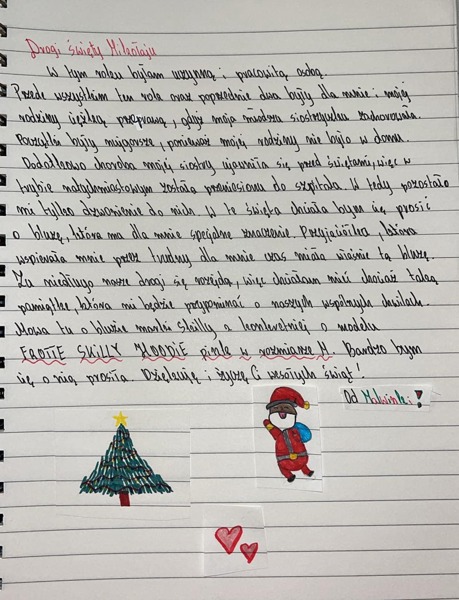 Drogi święty Mikołaju
W tym roku byłam uczynną i pracowitą osobą.
Przede wszystkim ten rok oraz poprzednie dwa były dla mnie i mojej
rodziny ciężką przeprawą, gdyż moja młodsza siostrzyczka zachorowała.
Początki były najgorsze, ponieważ mojej rodziny nie było w domu.
Dodatkowo choroba mojej siostry ujawniła się przed świętami, więc w
trybie natychmiastowym została przeniesiona do szpitala. W tedy pozostało
mi tylko dzwonienie do nich. W te święta chciała bym cię prosić
o bluzę, która ma dla mnie specjalne znaczenie. Przyjaciółka, która
wspierała mnie przez trudny dla mnie czas miała właśnie tą bluzę.
Za niedługo nasze drogi się rozejdą, więc chciałam mieć chociaż taką
pamiątkę, która mi będzie przypominać o naszych wspólnych chwilach.
Mowa tu o bluzie marki Skilly a konkretniej o modelu
FROTTE SKILLY HOODIE pinle w rozmiarze M. Bardzo bym
cię o nią prosiła. Dziękuję i życzę Ci wesołych świąt!
Od Malwinki!